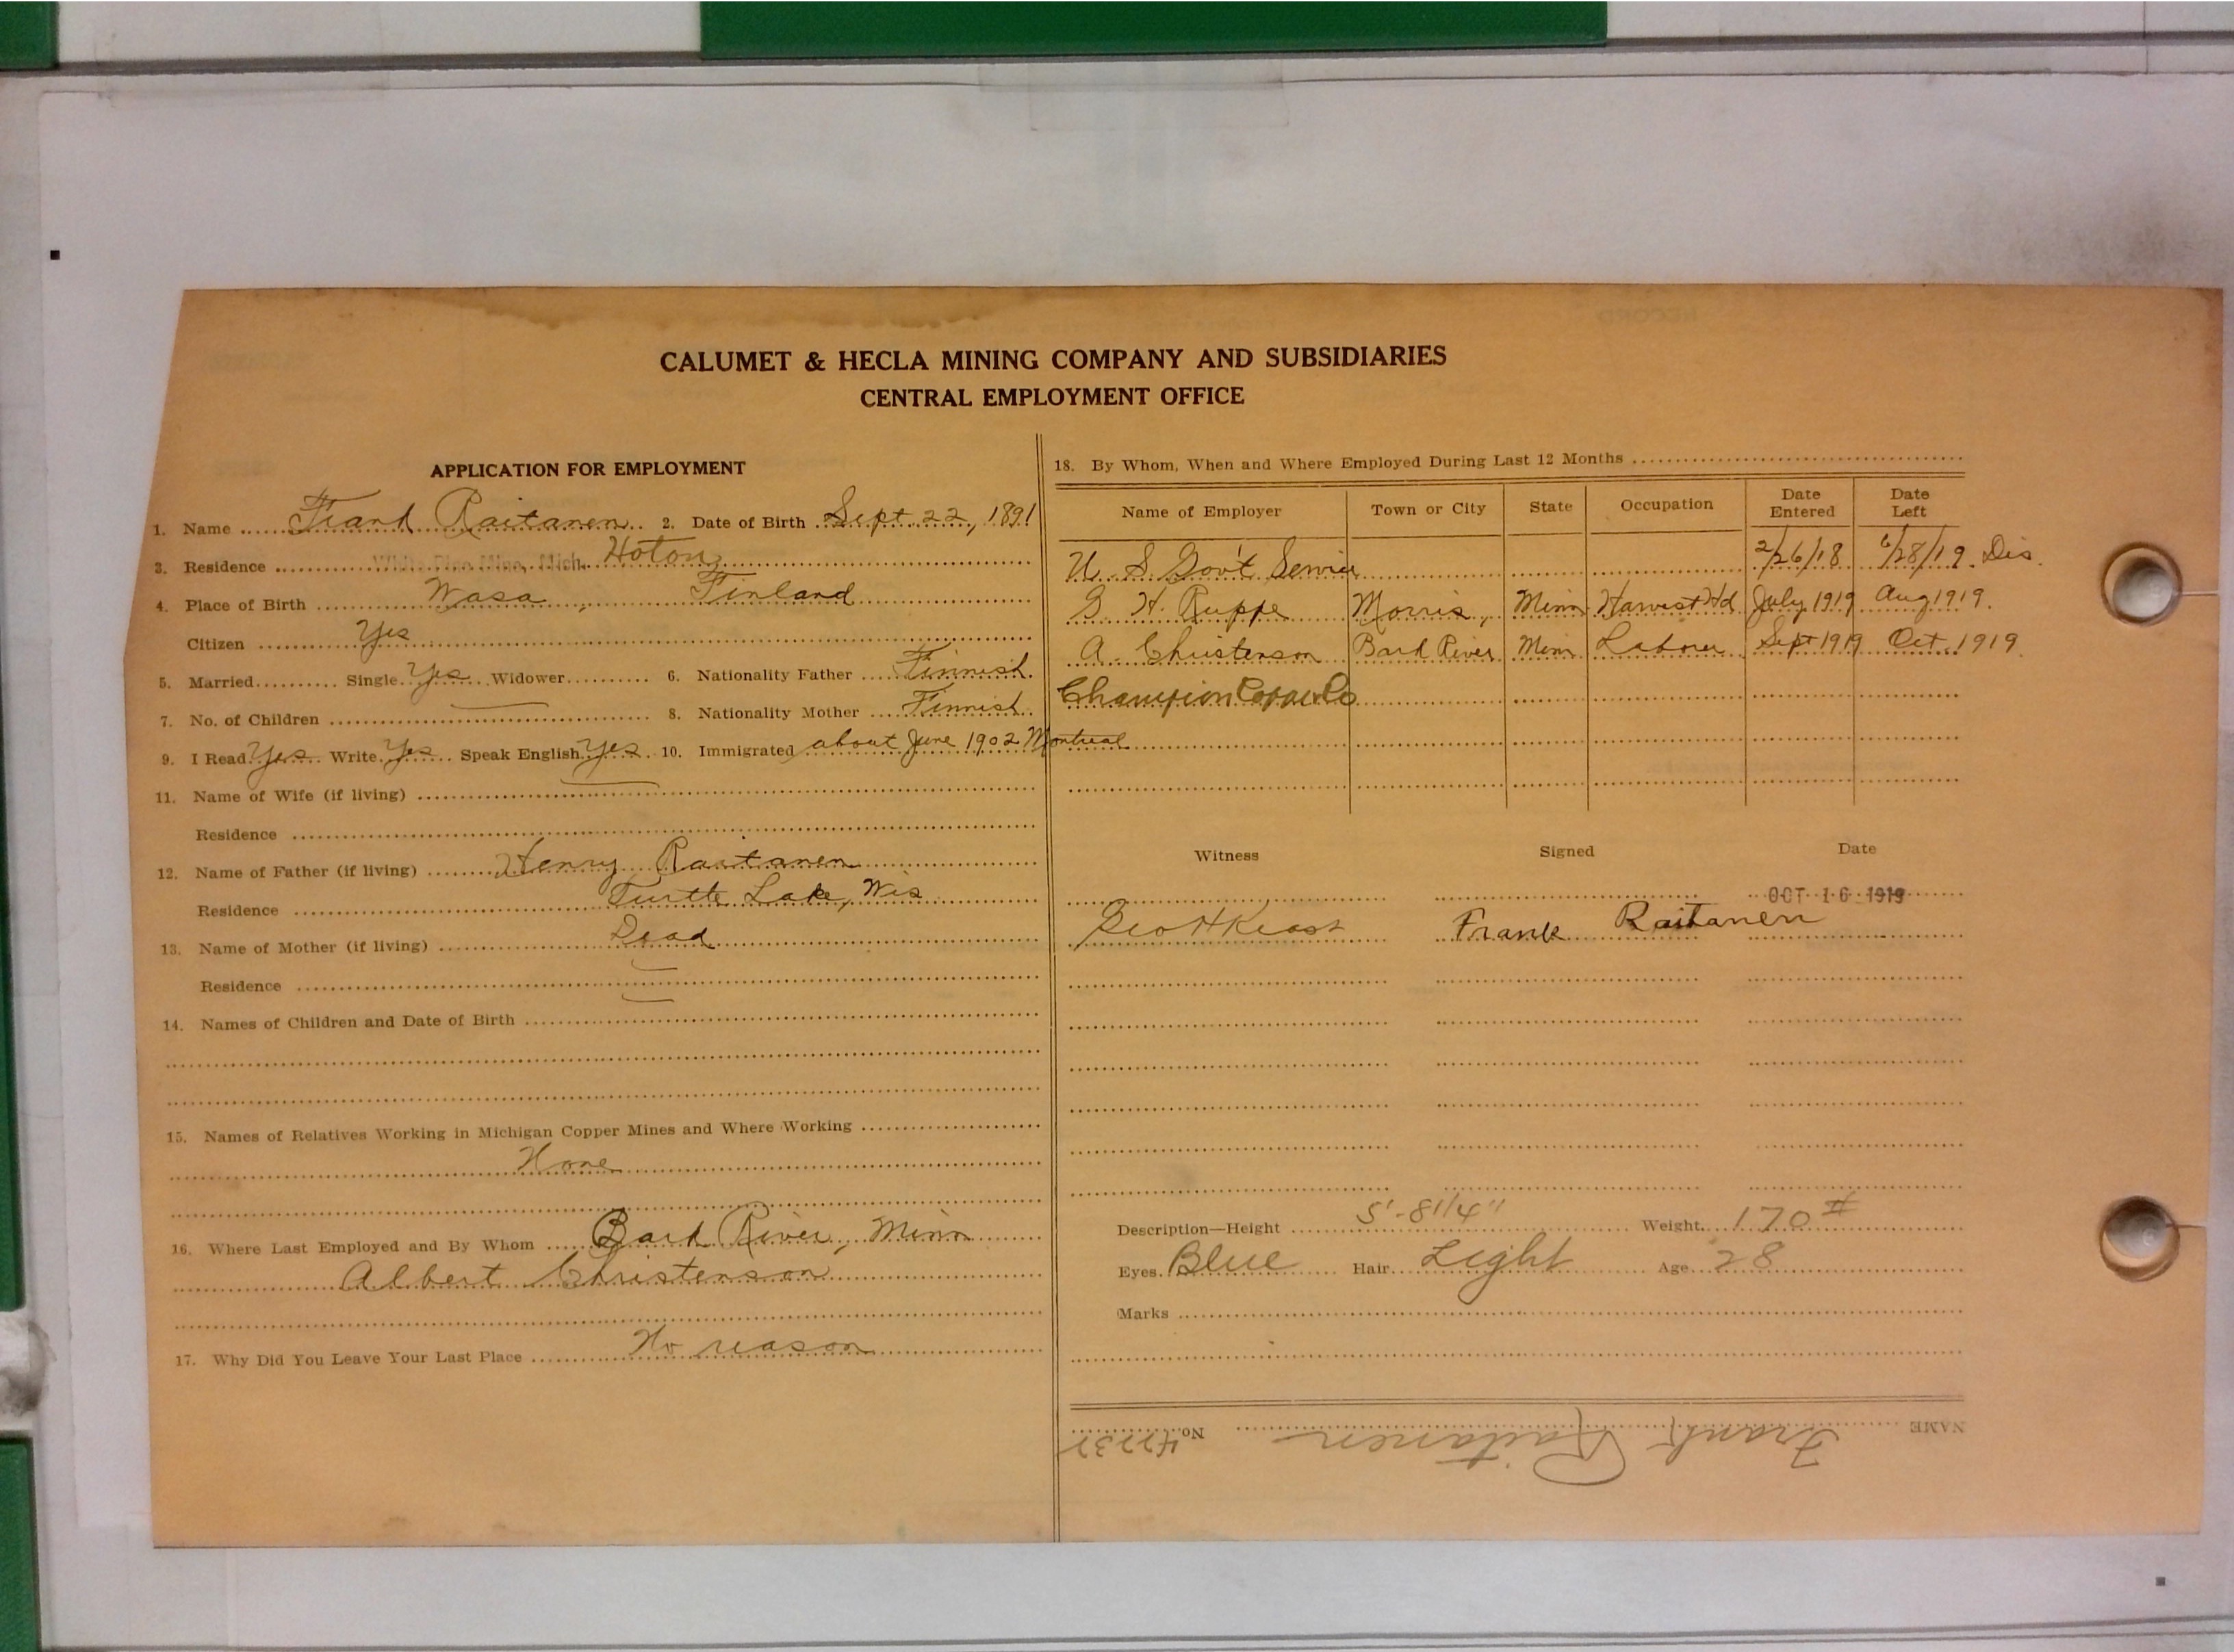 CALUMET & HECLA MINING COMPANY AND SUBSIDIARIES
CENTRAL EMPLOYMENT OFFICE
APPLICATION FOR EMPLOYMENT
1. Name Frank Raitanen 2. Date of Birth Sept 22, 1891
3. Residence White Pine Mine, Mich. Hoton
4. Place of Birth Wasa, Finland
Citizen Yes
5. Married Single Yes Widower 6. Nationality Father Finnish
7. No. of Children 8. Nationality Mother Finnish
9. I Read Yes Write Yes Speak English Yes 10. Immigrated about June 1902 Montreal
11. Name of Wife (if living)
Residence
12. Name of Father (if living) Henry Raitanen
Residence Turtle Lake, Wis
13. Name of Mother (if living) Dead
Residence
14. Names of Children and Date of Birth
15. Names of Relatives Working in Michigan Copper Mines and Where Working
None
16. Where Last Employed and By Whom Bard River, Minn
Albert Christenson
17. Why Did You Leave Your Last Place No reason
18. By Whom, When and Where Employed During Last 12 Months
Name of Employer Town or City State Occupation Date Entered Date Left
U. S Gov't Service 2/26/18 6/28/19 Dis.
G. H. Ruppe Morris, Minn Harvest Hd July 1919 Aug 1919.
A. Christenson Bard River Minn Laborer Sept 1919 Oct. 1919.
Champion Copper Co
Witness Signed Date
OCT 16 1919
Geo H Keast Frank Raitanen
Description—Height 5'-8 1/4" Weight 170 #
Eyes Blue Hair Light Age 28
Marks
NAME Frank Raitanen No.